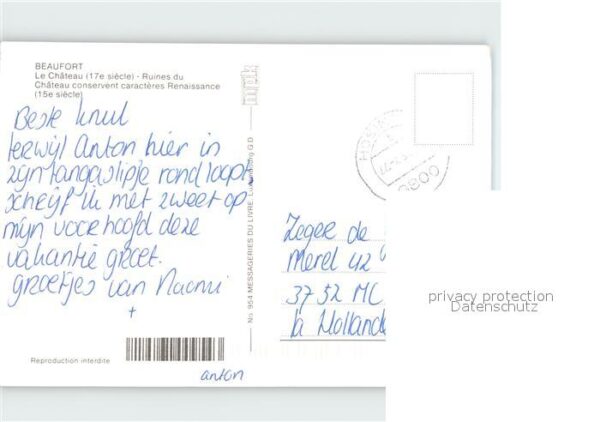 BEAUFORT
Le Château (17e siècle) - Ruines du
Château conservent caractères Renaissance
(15e siècle)
Beste knul
terwijl Anton hier in
zijn tangaslipje rond loopt
schrijf ik met zweet op
mijn voorhoofd deze
vakantie groet.
groetjes van Naomi
+
anton
Reproduction interdite
No. 954 MESSAGERIES DU LIVRE, Luxembourg G.D.
mdl
Zeger de
Merel 42
3752 MC
la Hollande
privacy protection
Datenschutz